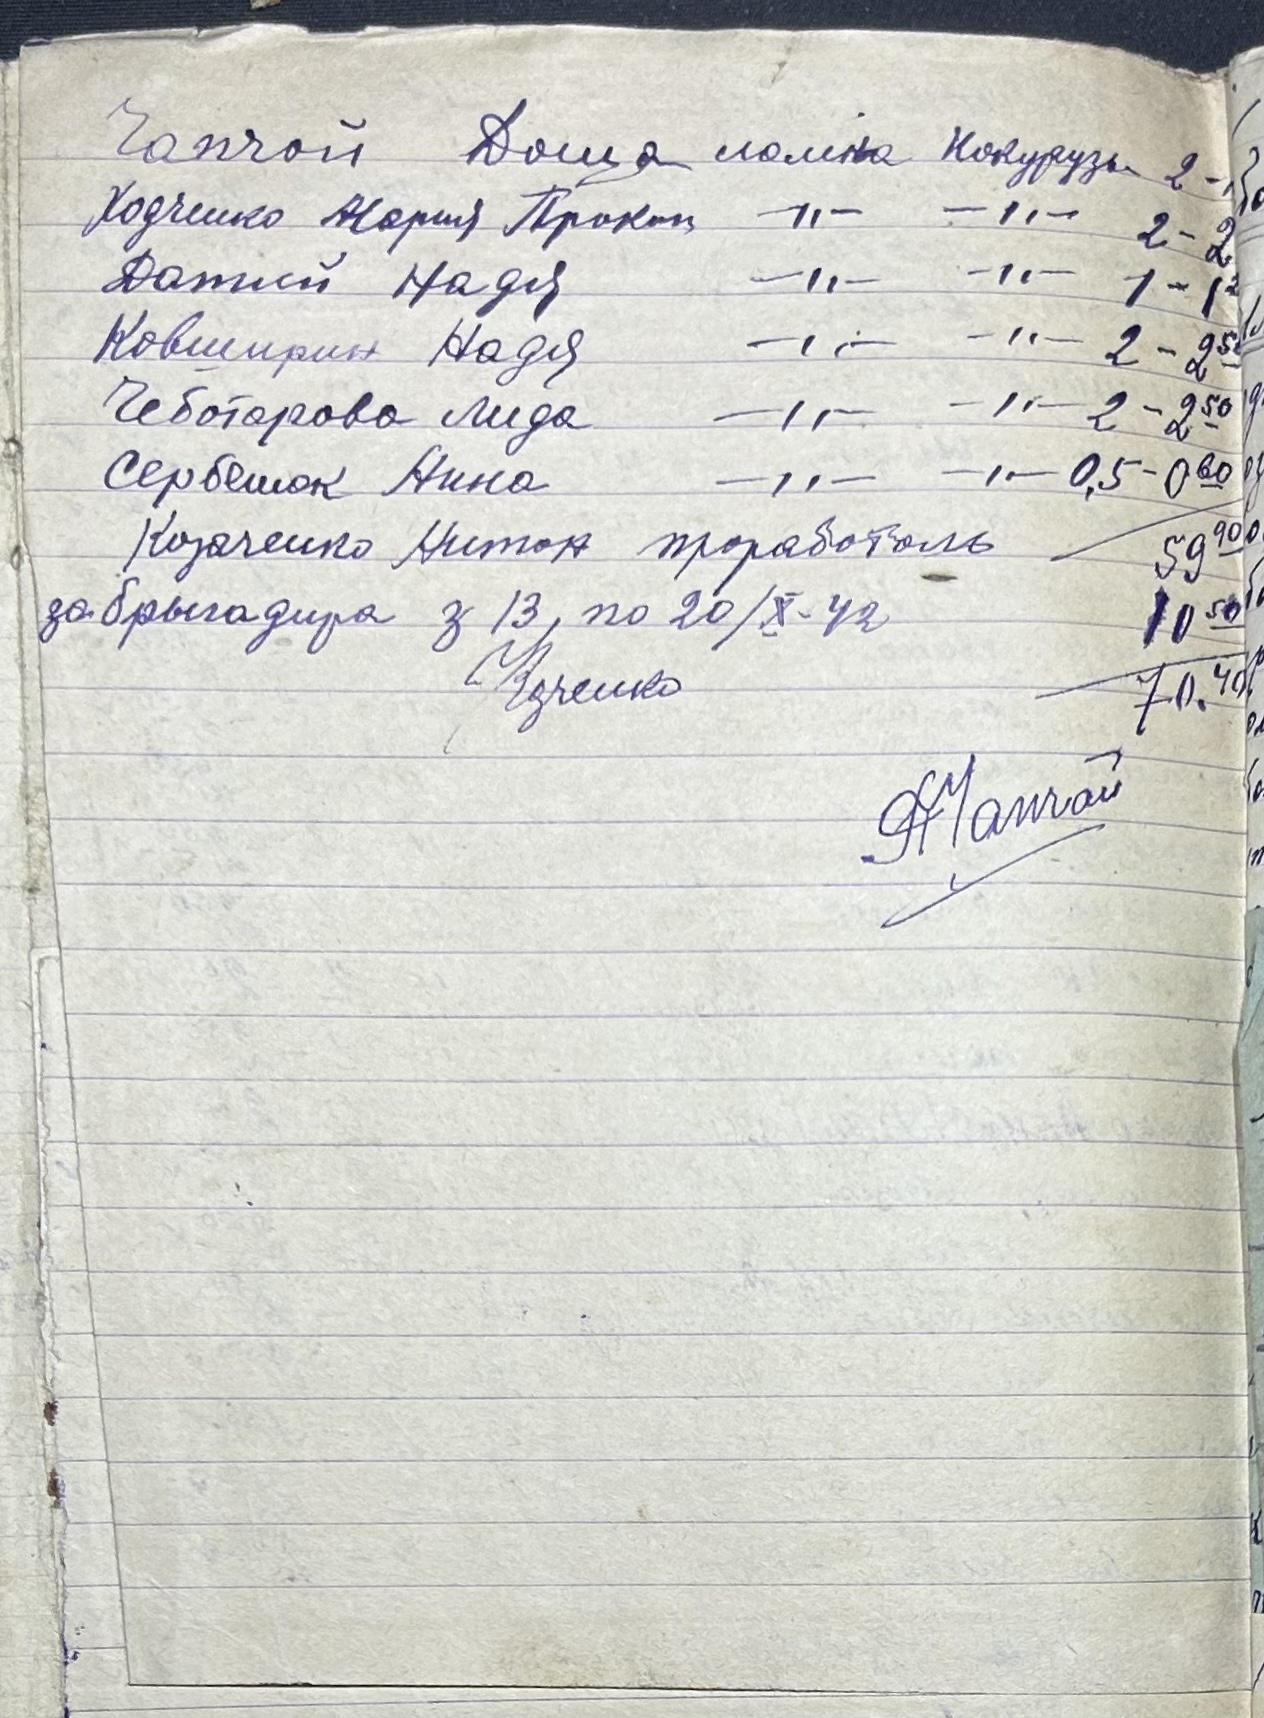 Чапчой Доща ломіка Кокурузы 2 -
Ходченко Мария Прокоп —〃— —〃— 2 - 2
Датий Надя —〃— —〃— 1 - 1
Ковширин Надя —〃— —〃— 2 - 2 50
Чеботарова Лида —〃— —〃— 2 - 2 50
Сербенюк Анна —〃— —〃— 0,5 - 0 60
Козаченко Антон проработаль 59 90
за брыгадира з 13 по 20/X-42 10 50
70.40
Чапчай